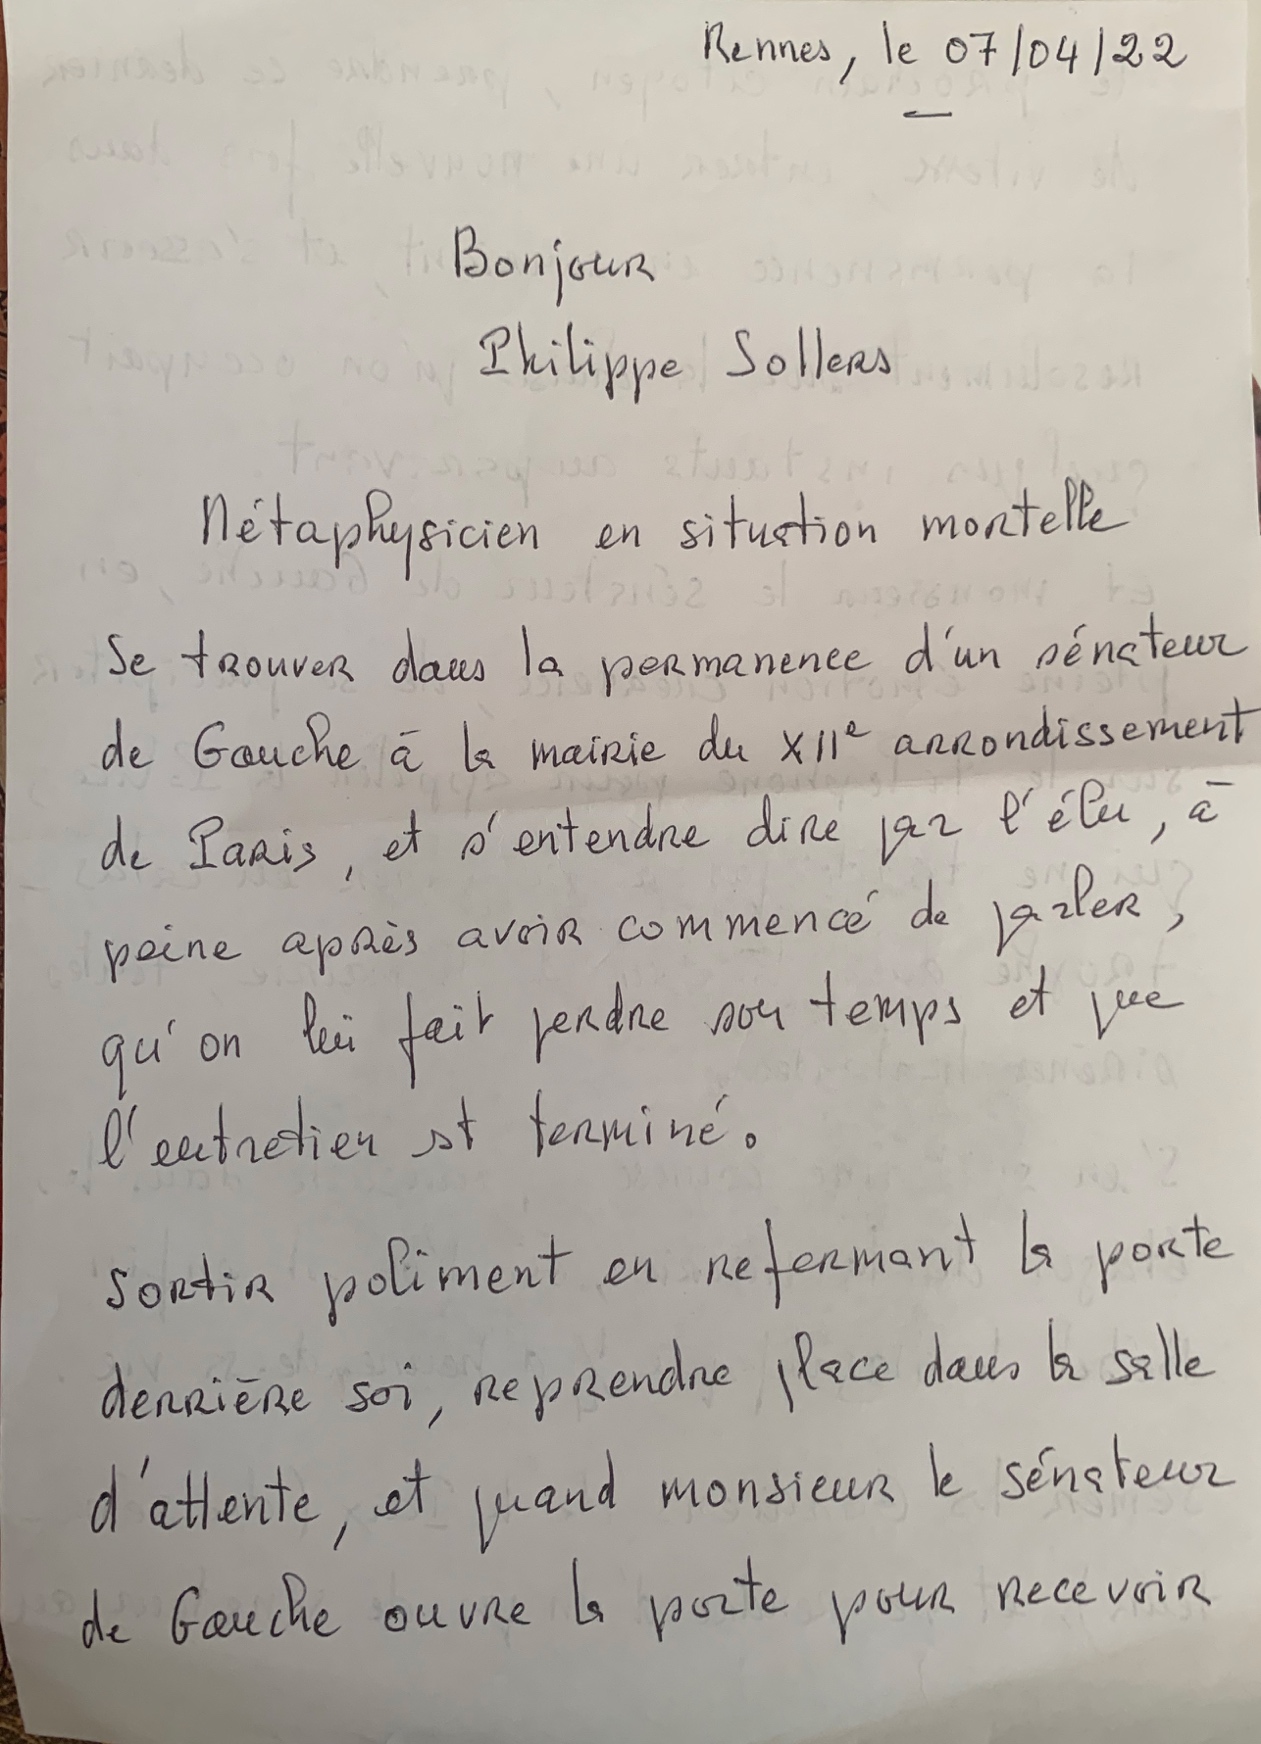 Rennes, le 07/04/22
Bonjour
Philippe Sollers
Métaphysicien en situation mortelle
Se trouver dans la permanence d'un sénateur
de Gauche à la mairie du XIIe arrondissement
de Paris, et s'entendre dire par l'élu, à
peine après avoir commencé de parler,
qu'on lui fait perdre son temps et que
l'entretien est terminé.
Sortir poliment en refermant la porte
derrière soi, reprendre place dans la salle
d'attente, et quand monsieur le sénateur
de Gauche ouvre la porte pour recevoir